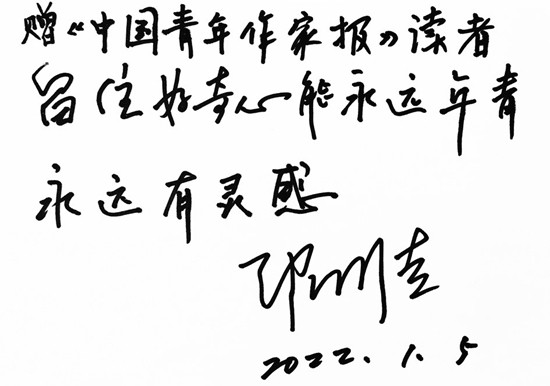 赠《中国青年作家报》读者
留住好奇心能永远年青
永远有灵感
2022.1.5